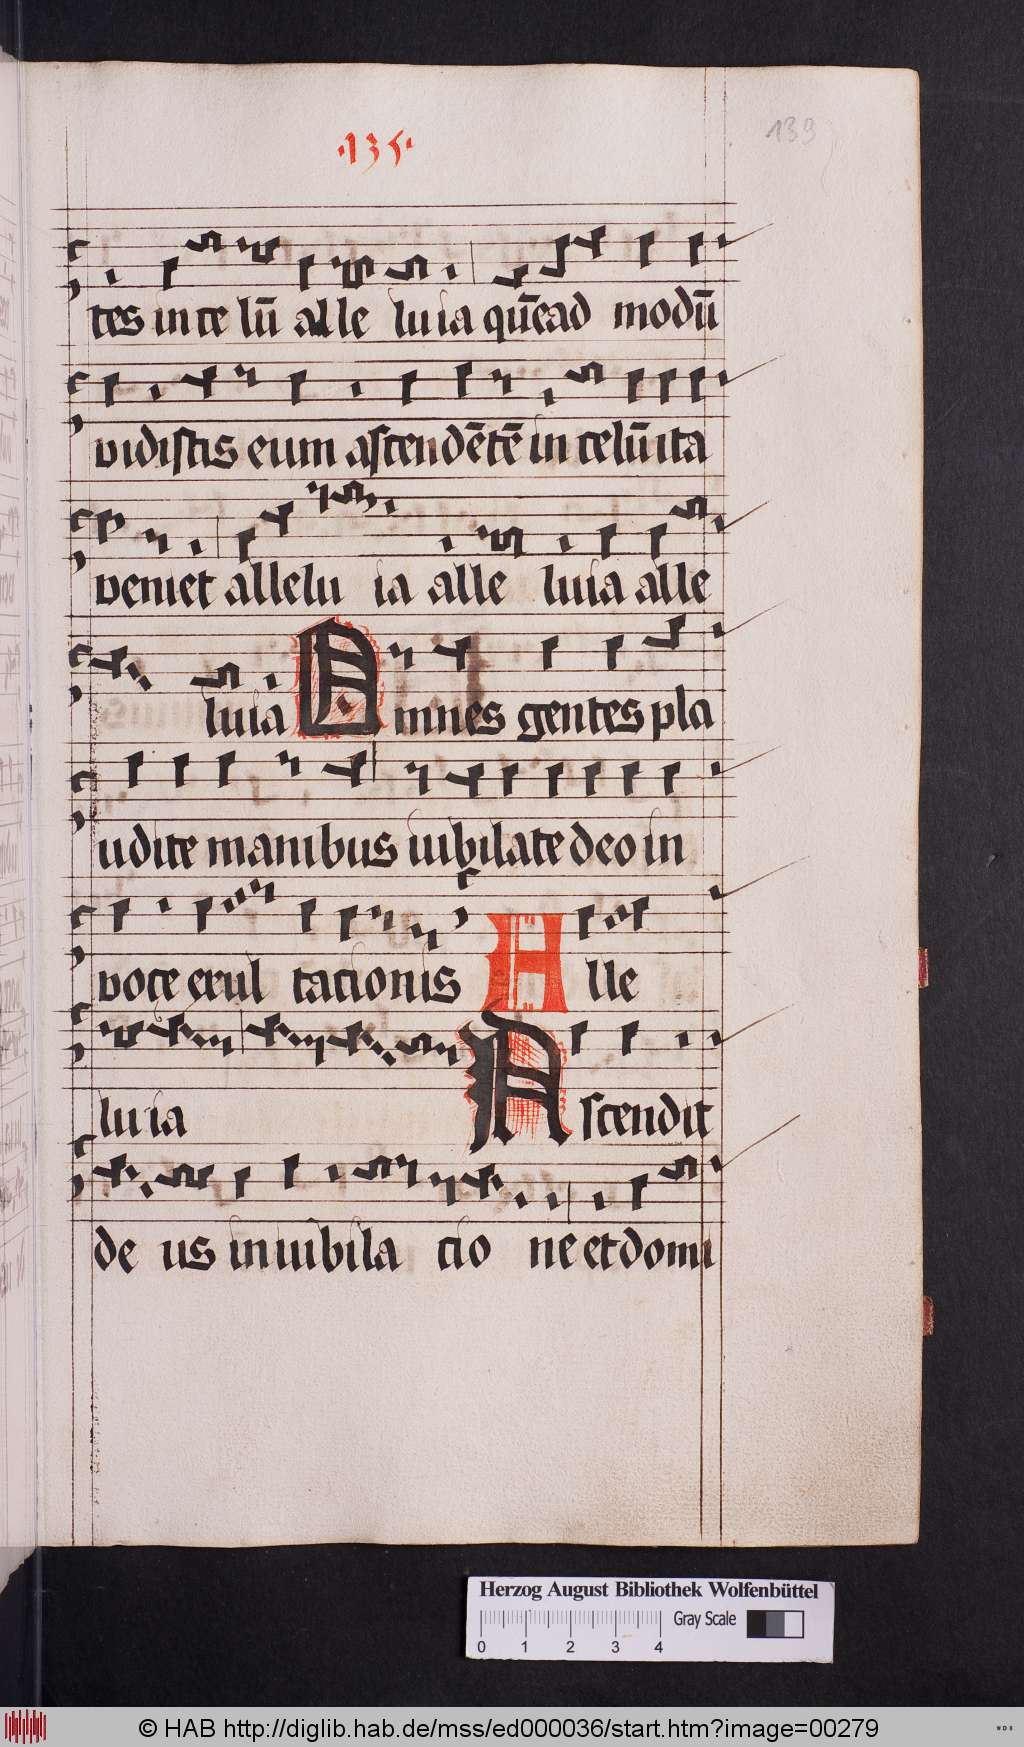 ·135·
139
tes in ce lū alle luia quēad modū
vidistis eum ascendētē in celū ita
veniet allelu ia alle luia alle
luia Omnes gentes pla
udite manibus iubilate deo in
voce exul tacionis Alle
luia Ascendit
de us in iubila cio ne et domi
Herzog August Bibliothek Wolfenbüttel
Gray Scale
0 1 2 3 4
© HAB http://diglib.hab.de/mss/ed000036/start.htm?image=00279